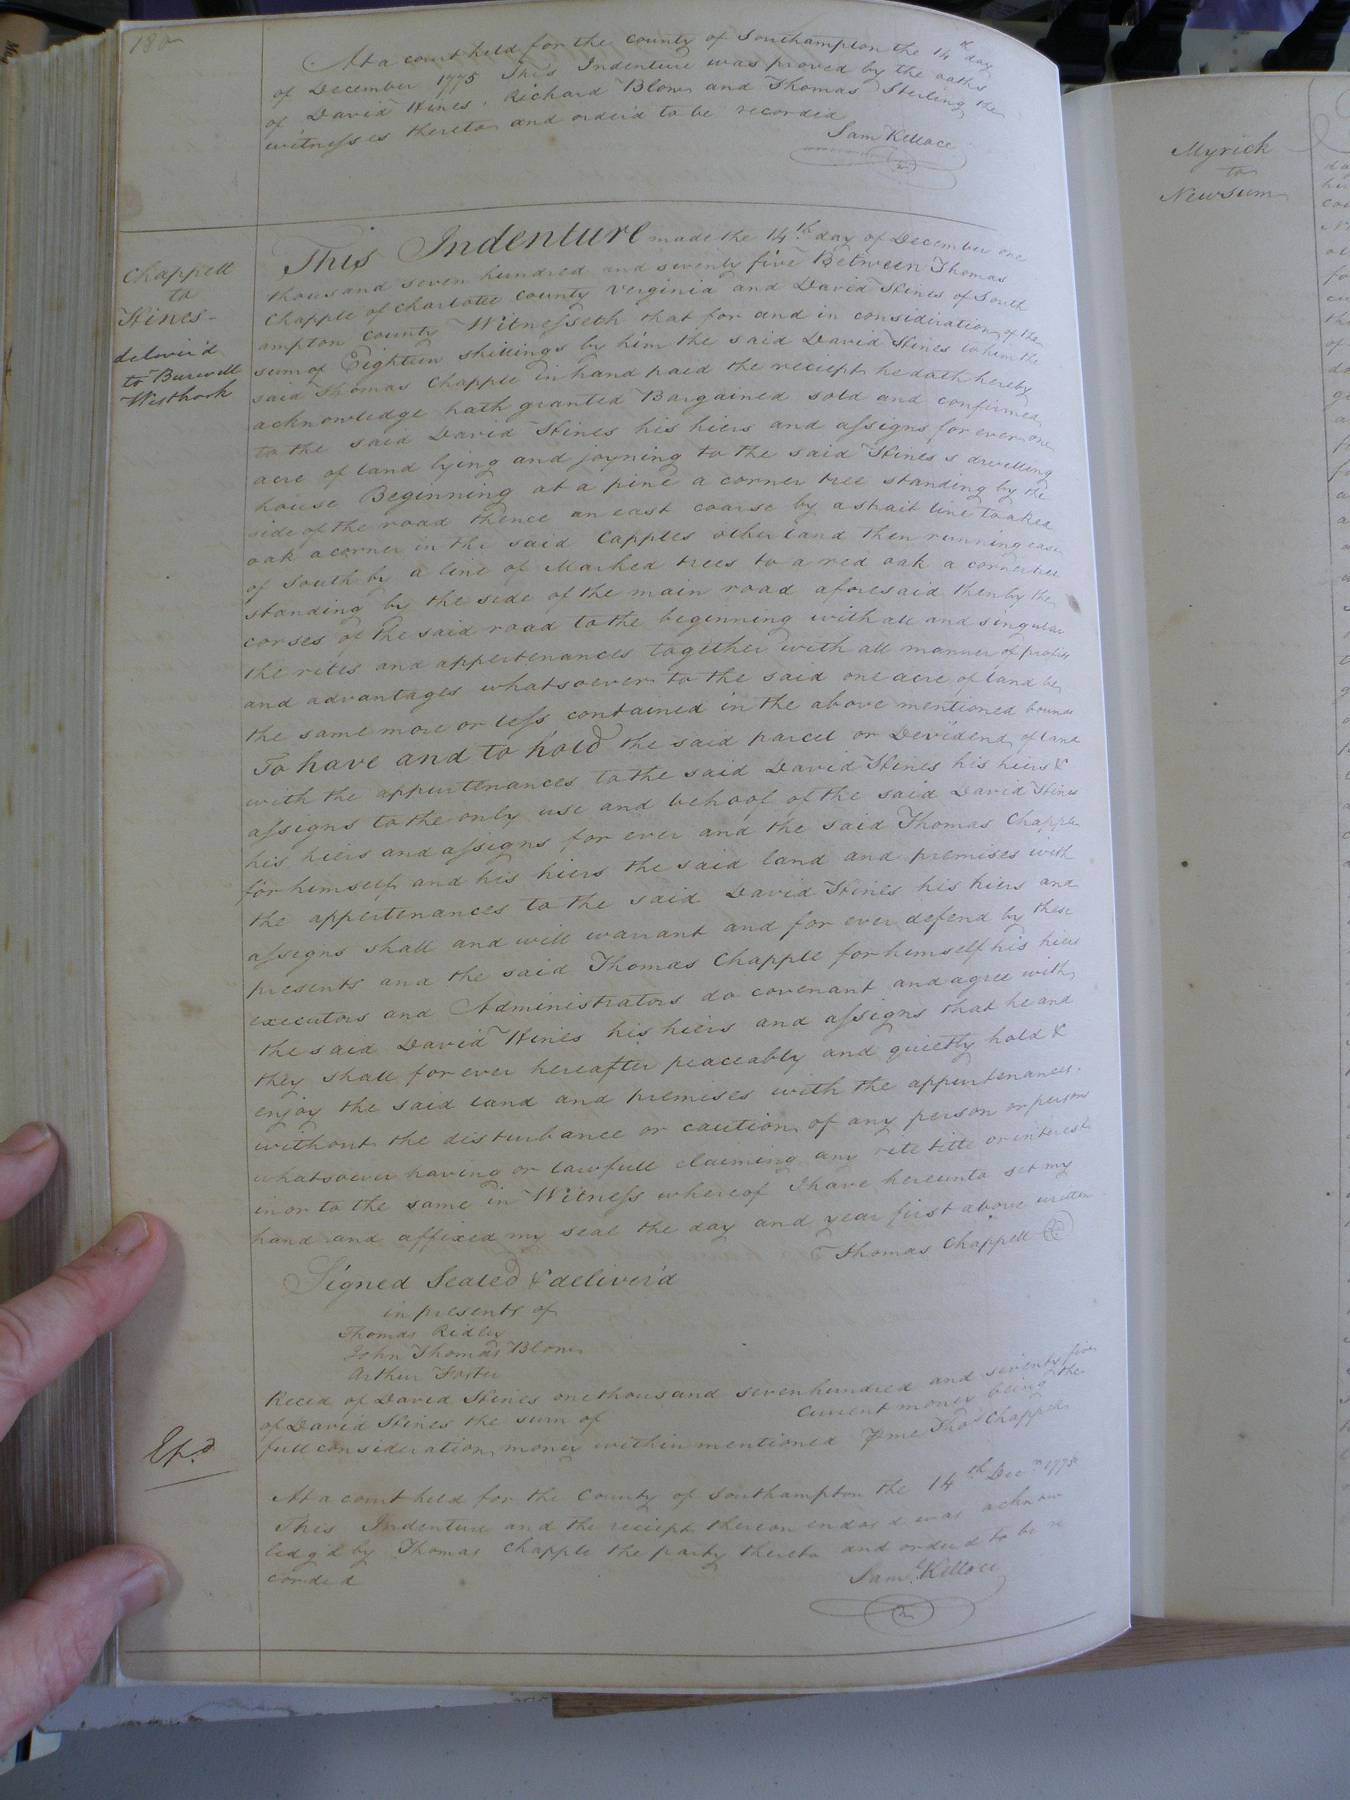 180
At a court held for the county of Southampton the 14th day
of December 1775 This Indenture was proved by the oaths
of David Hines. Richard Blow and Thomas Sterling the
witnesses thereto and order'd to be recorded
Sam Kelloce
Chappell
to
Hines
deliver'd
to Burwell
Westbrook
This Indenture made the 14th day of December one
thousand seven hundred and seventy five Between Thomas
Chapple of Charlotte County Virginia and David Hines of South
ampton County Witnesseth that for and in consideration of the
sum of Eighteen shillings by him the said David Hines to him the
said Thomas Chapple in hand paid the reciept he doth hereby
acknowledge hath granted Bargained sold and confirmed
to the said David Hines his hiers and assigns for ever one
acre of land lying and joyning to the said Hines s dwelling
house Beginning at a pine a corner tree standing by the
side of the road thence an east coarse by a strait line to a red
oak a corner in the said Capples other land then running east
of South by a line of Marked trees to a red oak a corner tree
standing by the side of the main road aforesaid then by the
corses of the said road to the beginning with all and singular
the rites and appertenances together with all manner of profits
and advantages whatsoever to the said one acre of land be
the same more or less contained in the above mentioned bounds
To have and to hold the said parcel or Devidend of land
with the appurtenances to the said David Hines his hiers &
assigns to the only use and behoof of the said David Hines
his hiers and assigns for ever and the said Thomas Chapple
for himself and his hiers the said land and premises with
the appertenances to the said David Hines his hiers and
assigns shall and will warrant and for ever defend by these
presents and the said Thomas Chapple for himself his hiers
executors and Administrators do covenant and agree with
the said David Hines his hiers and assigns that he and
they shall for ever hereafter peaceably and quietly hold &
enjoy the said land and premises with the appurtenances.
without the disturbance or caution of any person or persons
whatsoever having or lawfull claiming any rite title or interest
in or to the same in Witness whereof I have hereunto set my
hand and affixed my seal the day and year first above written
Thomas Chappell
Signed Sealed & deliver'd
in presents of
Thomas Ridley
John Thomas Blow
Arthur Foster
Recied of David Hines one thousand seven hundred and seventy five
of David Hines the sum of current money being the
full consideration money within mentioned pr me Thos Chappell
Exd
At a court held for the County of Southampton the 14th Decm 1775
This Indenture and the reciept thereon endors'd was acknow
ledg'd by Thomas Chapple the party thereto and order'd to be re
corded
Sam. Kelloce
Myrick
to
Newsum